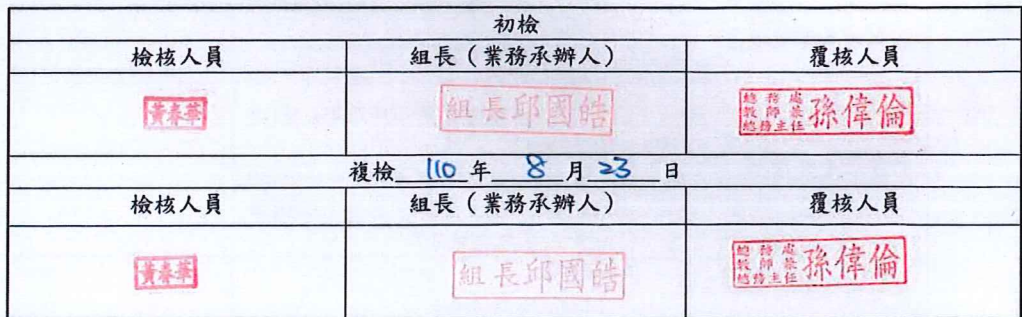 初檢
檢核人員 組長（業務承辦人） 覆核人員
黃春華 組長邱國皓 總務處 教師兼 總務主任 孫偉倫
複檢 110 年 8 月 23 日
檢核人員 組長（業務承辦人） 覆核人員
黃春華 組長邱國皓 總務處 教師兼 總務主任 孫偉倫